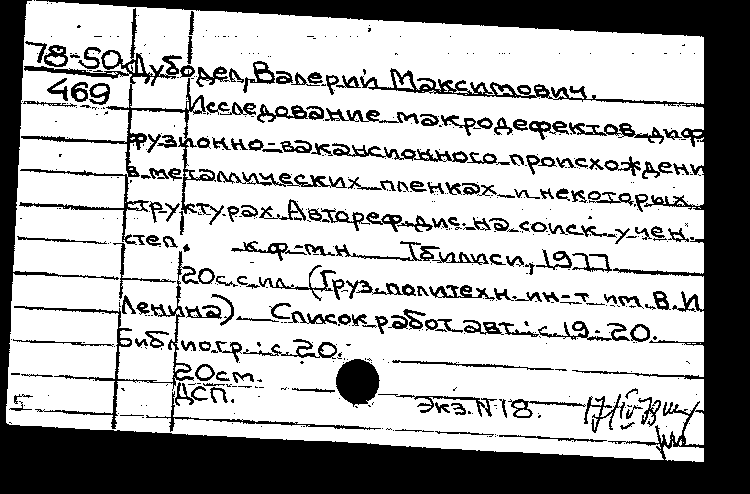 78-50 Дубодел, Валерий Максимович.
469 Исследование макродефектов диф
фузионно-вакансионного происхождени
в металлических пленках и некоторых
структурах. Автореф. дис. на соиск. учен.
степ. к.ф-т.н. Тбилиси, 1977
20с. с ил. (Груз. политехн. ин-т им. В.И
Ленина). Список работ авт.: с. 19-20.
Библиогр.: с. 20.
20см.
ДСП.
5 Экз. N 18. 17/IV-78